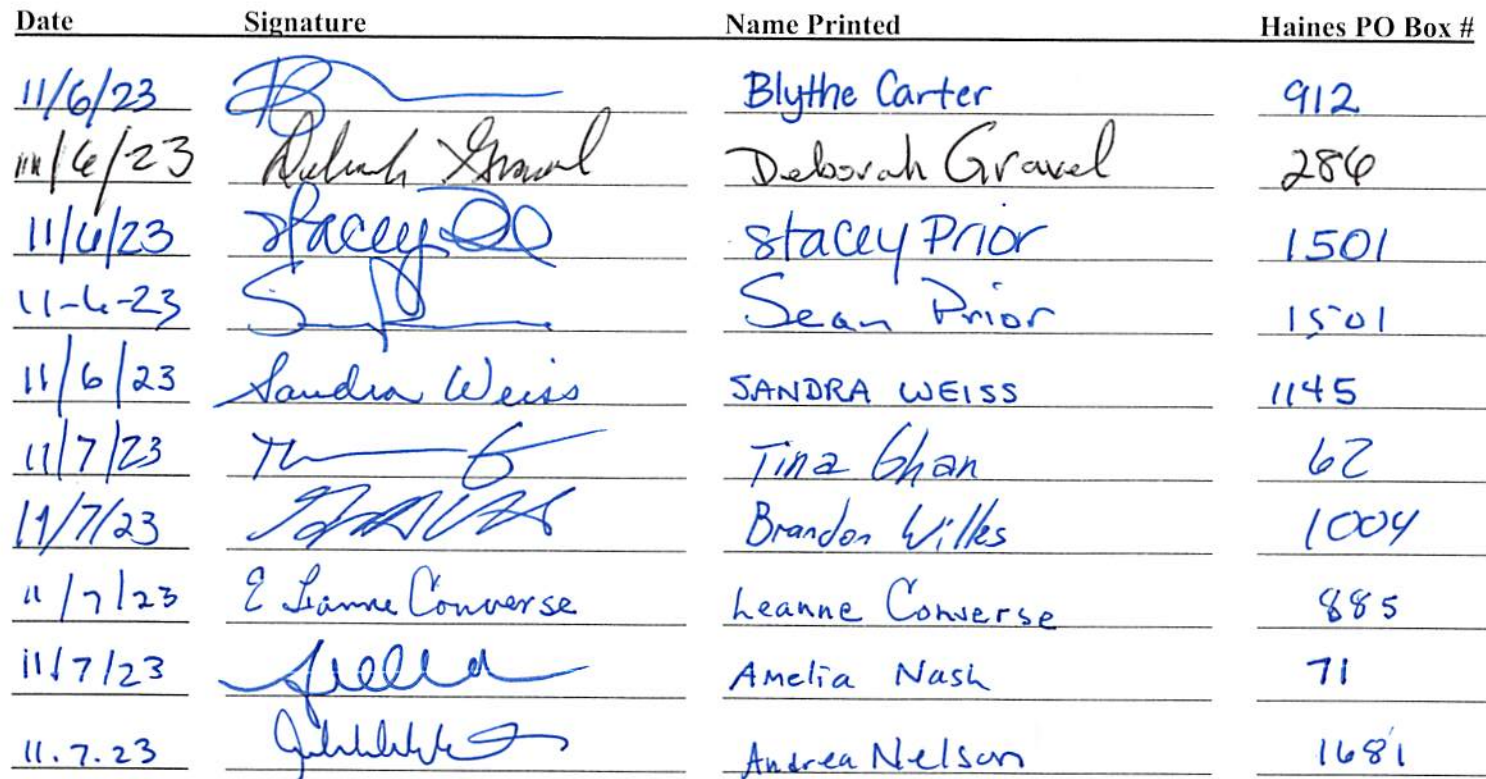 Date Signature Name Printed Haines PO Box #
11/6/23 Blythe Carter 912
11/6/23 Deborah Gravel Deborah Gravel 286
11/6/23 Stacey Stacey Prior 1501
11-6-23 Sean Prior 1501
11/6/23 Sandra Weiss SANDRA WEISS 1145
11/7/23 Tina Ghan 62
11/7/23 Brandon Wilks 1004
11/7/23 E Leanne Converse Leanne Converse 885
11/7/23 Amelia Nash 71
11.7.23 Andrea Nelson 1681